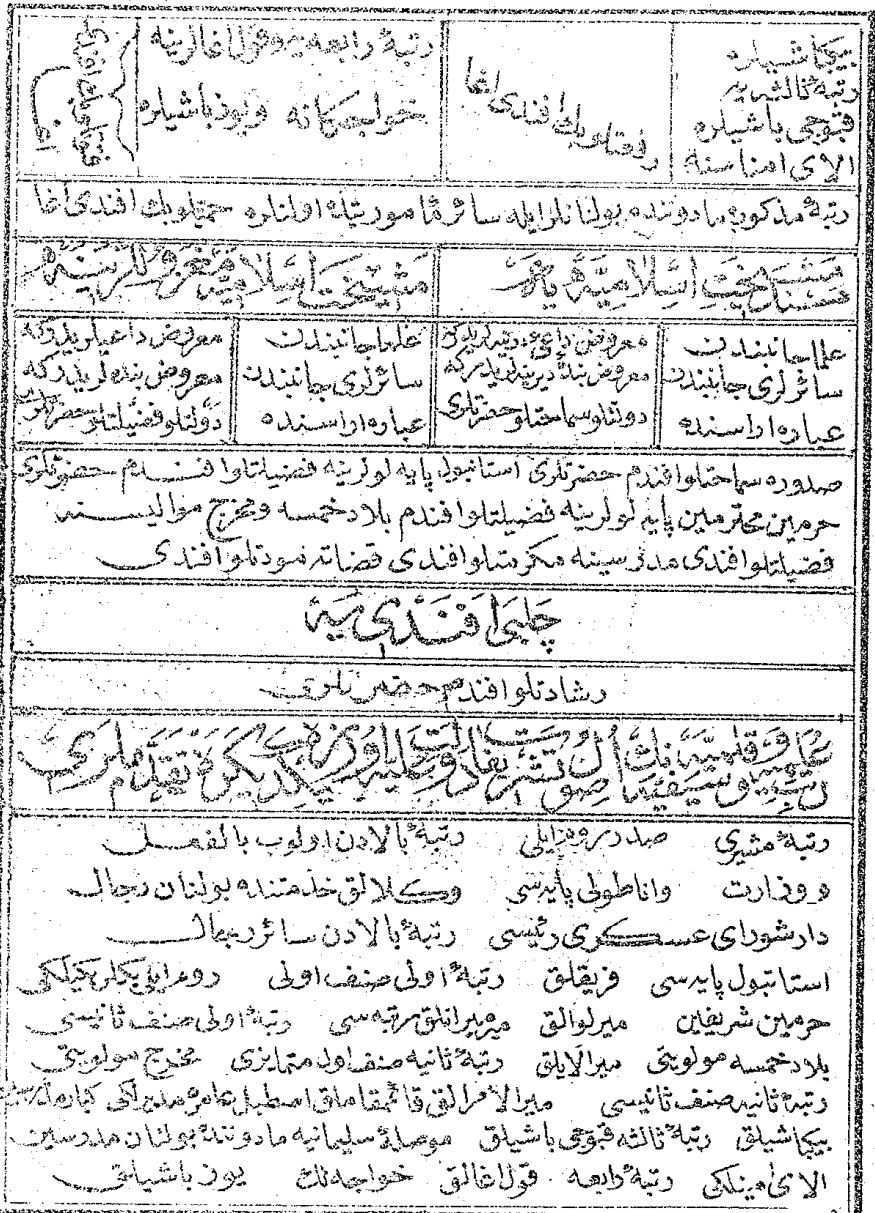 بیکباشیلره
رتبهٔ ثالثه یه
قپوجی باشیلره
الای امناسنه
رفعتلو بك افندی اغا
رتبهٔ رابعه یه وقول اغالرینه
خواجکانه ویوزباشیلره
فتوتلو بك افندی
اغا
رتبهٔ مذکوره مادوننده بولنانلرایله سائر مأموریتده اولنلره حمیتلو بك افندی اغا
مسند مشیخت اسلامیه
مشیخت اسلامیه معزوللرینه
علما جانبندن
سائرلری جانبندن
عباره اراسنده
معروض داعیٔ دیرینه لریدرکه
معروض بندهٔ دیرینه لریدرکه
دولتلو سماحتلو حضرتلری
علما جانبندن
سائرلری جانبندن
عباره اراسنده
معروض داعیلریدرکه
معروض بنده لریدرکه
دولتلو فضیلتلو حضرتلری
صدوره سماحتلو افندم حضرتلری استانبول پایه لولرینه فضیلتلو افندم حضرتلری
حرمین محترمین پایه لولرینه فضیلتلو افندم بلاد خمسه ومخرج موالیسنه
فضیلتلو افندی مدرسینه مکرمتلو افندی قضاته مودتلو افندی
چلبی افندی یه
رشادتلو افندم حضرتلری
رتب علمیه وسیفیه وقلمیه نك یکدیکره تقدملری
رتبهٔ مشیری صدر روم ایلی رتبهٔ بالادن اولوب بالفعل
و وزارت واناطولی پایه سی وکلالق خدمتنده بولنان رجال
دارشورای عسکری رئیسی رتبهٔ بالادن سائر رجال
استانبول پایه سی فریقلق رتبهٔ اولی صنف اولی روم ایلی بکلربکیلکی
حرمین شریفین میرلوالق میرمیرانلق رتبه سی رتبهٔ اولی صنف ثانیسی
بلاد خمسه مولویتی میرالایلق رتبهٔ ثانیه صنف اول متمایزی مخرج مولویتی
رتبهٔ ثانیه صنف ثانیسی میرالامرالق قائمقاملق اصطبل عامره مدیرلکی کبار مدرسین
بیکباشیلق رتبهٔ ثالثه قپوجی باشیلق موصلهٔ سلیمانیه مادوننده بولنان مدرسین
الای امینلکی رتبهٔ رابعه قول اغالق خواجه لك یوزباشیلق